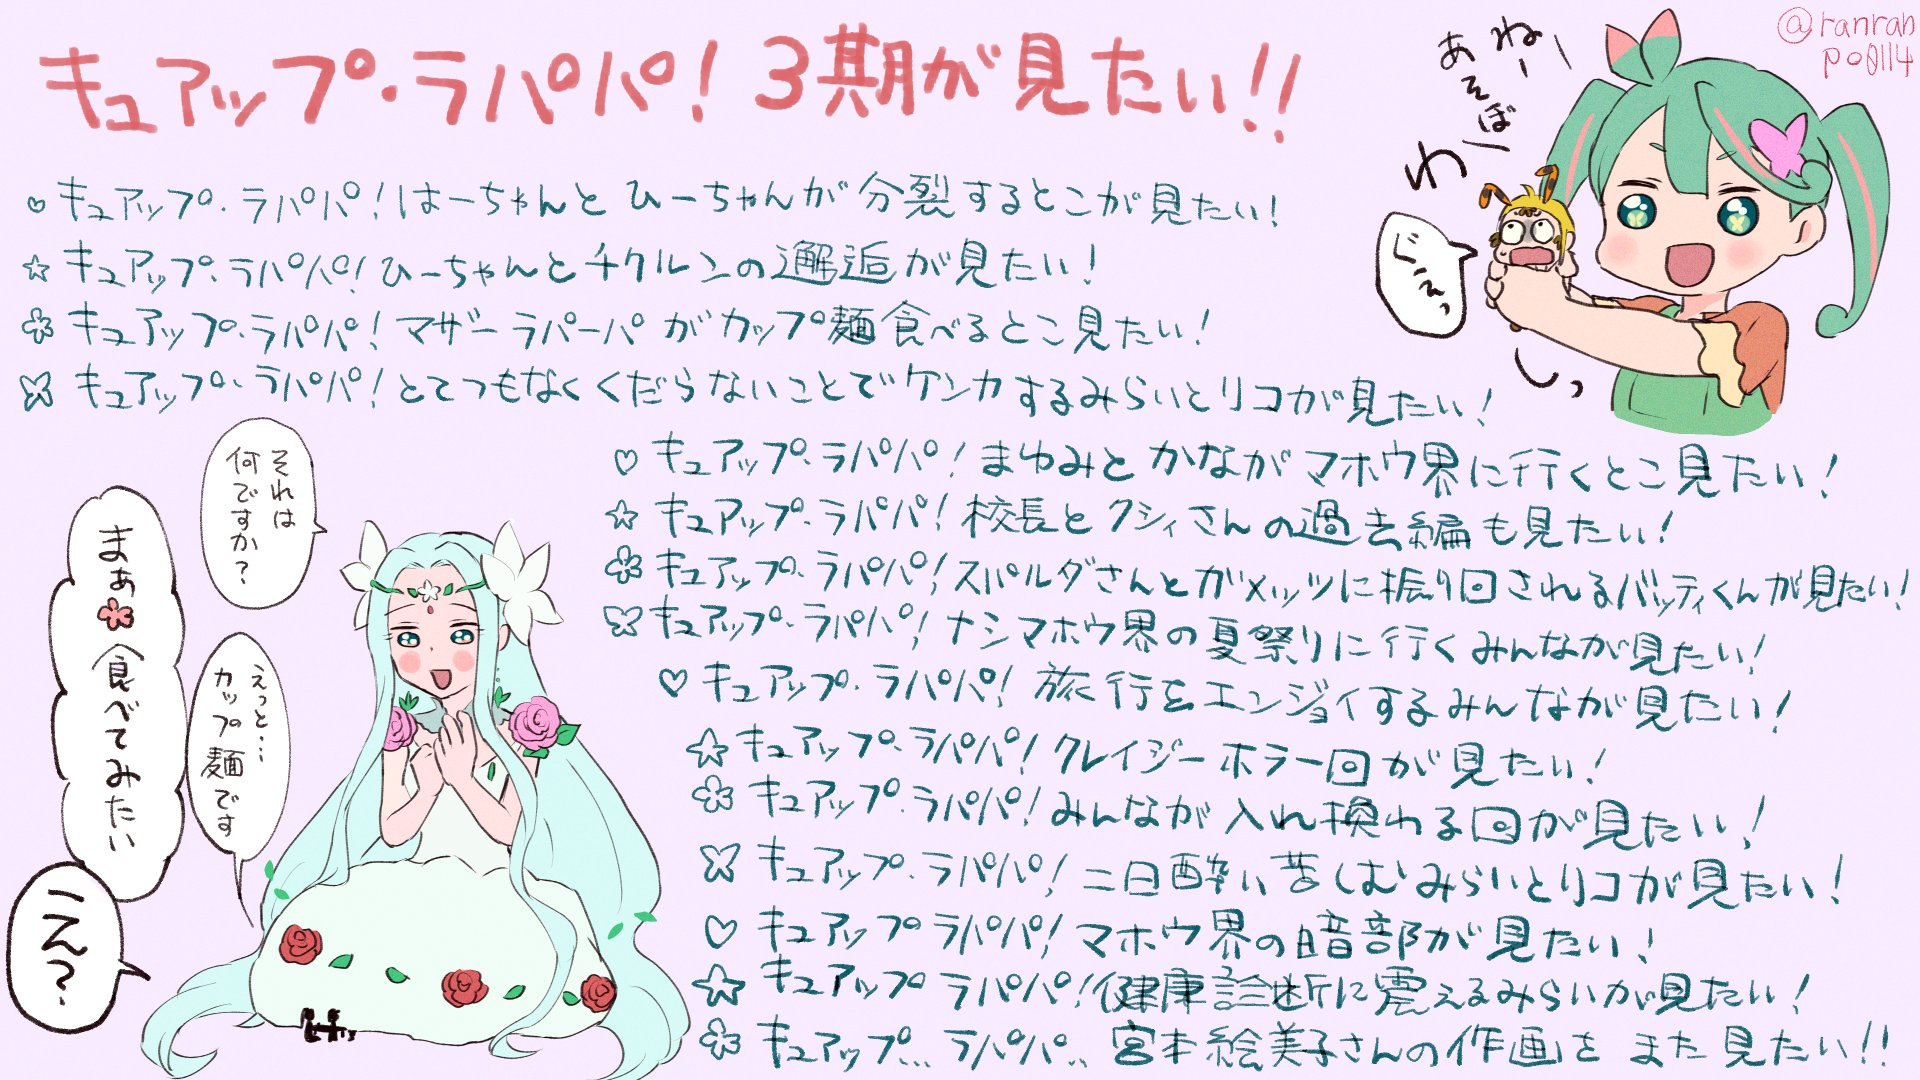 キュアップ・ラパパ！3期が見たい!!
@ranran
po0114
ねー
あそぼー
わ
じえっ
しっ
キュアップ・ラパパ！はーちゃんとひーちゃんが分裂するとこが見たい！
キュアップ・ラパパ！ひーちゃんとチクルンの邂逅が見たい！
キュアップ・ラパパ！マザーラパーパがカップ麺食べるとこ見たい！
キュアップ・ラパパ！とてつもなくくだらないことでケンカするみらいとリコが見たい！
キュアップ・ラパパ！まゆみとかながマホウ界に行くとこ見たい！
キュアップ・ラパパ！校長とクシィさんの過去編も見たい！
キュアップ・ラパパ！スパルダさんとガメッツに振り回されるバッティくんが見たい！
キュアップ・ラパパ！ナシマホウ界の夏祭りに行くみんなが見たい！
キュアップ・ラパパ！旅行をエンジョイするみんなが見たい！
キュアップ・ラパパ！クレイジーホラー回が見たい！
キュアップ・ラパパ！みんなが入れ換わる回が見たい！
キュアップ・ラパパ！二日酔い苦しむみらいとリコが見たい！
キュアップ ラパパ！マホウ界の暗部が見たい！
キュアップ ラパパ！健康診断に震えるみらいが見たい！
キュアップ… ラパパ… 宮本絵美子さんの作画をまた見たい!!
それは
何ですか？
えっと…
カップ麺です
まぁ
食べてみたい
こえ？